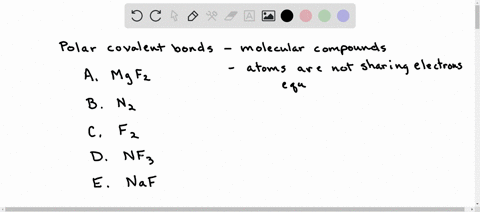 Polar covalent bonds - molecular compounds
- atoms are not sharing electrons
equ
A. MgF₂
B. N₂
C. F₂
D. NF₃
E. NaF